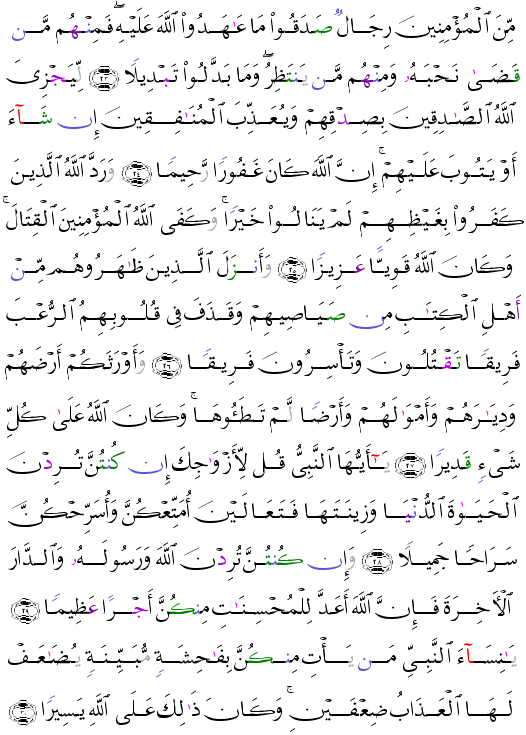 مِّنَ ٱلْمُؤْمِنِينَ رِجَالٌ صَدَقُوا۟ مَا عَـٰهَدُوا۟ ٱللَّهَ عَلَيْهِ ۖ فَمِنْهُم مَّن
قَضَىٰ نَحْبَهُۥ وَمِنْهُم مَّن يَنتَظِرُ ۖ وَمَا بَدَّلُوا۟ تَبْدِيلًا ﴿٢٣﴾ لِّيَجْزِىَ
ٱللَّهُ ٱلصَّـٰدِقِينَ بِصِدْقِهِمْ وَيُعَذِّبَ ٱلْمُنَـٰفِقِينَ إِن شَآءَ
أَوْ يَتُوبَ عَلَيْهِمْ ۚ إِنَّ ٱللَّهَ كَانَ غَفُورًا رَّحِيمًا ﴿٢٤﴾ وَرَدَّ ٱللَّهُ ٱلَّذِينَ
كَفَرُوا۟ بِغَيْظِهِمْ لَمْ يَنَالُوا۟ خَيْرًا ۚ وَكَفَى ٱللَّهُ ٱلْمُؤْمِنِينَ ٱلْقِتَالَ ۚ
وَكَانَ ٱللَّهُ قَوِيًّا عَزِيزًا ﴿٢٥﴾ وَأَنزَلَ ٱلَّذِينَ ظَـٰهَرُوهُم مِّنْ
أَهْلِ ٱلْكِتَـٰبِ مِن صَيَاصِيهِمْ وَقَذَفَ فِى قُلُوبِهِمُ ٱلرُّعْبَ
فَرِيقًا تَقْتُلُونَ وَتَأْسِرُونَ فَرِيقًا ﴿٢٦﴾ وَأَوْرَثَكُمْ أَرْضَهُمْ
وَدِيَـٰرَهُمْ وَأَمْوَٰلَهُمْ وَأَرْضًا لَّمْ تَطَـُٔوهَا ۚ وَكَانَ ٱللَّهُ عَلَىٰ كُلِّ
شَىْءٍ قَدِيرًا ﴿٢٧﴾ يَـٰٓأَيُّهَا ٱلنَّبِىُّ قُل لِّأَزْوَٰجِكَ إِن كُنتُنَّ تُرِدْنَ
ٱلْحَيَوٰةَ ٱلدُّنْيَا وَزِينَتَهَا فَتَعَالَيْنَ أُمَتِّعْكُنَّ وَأُسَرِّحْكُنَّ
سَرَاحًا جَمِيلًا ﴿٢٨﴾ وَإِن كُنتُنَّ تُرِدْنَ ٱللَّهَ وَرَسُولَهُۥ وَٱلدَّارَ
ٱلْـَٔاخِرَةَ فَإِنَّ ٱللَّهَ أَعَدَّ لِلْمُحْسِنَـٰتِ مِنكُنَّ أَجْرًا عَظِيمًا ﴿٢٩﴾
يَـٰنِسَآءَ ٱلنَّبِىِّ مَن يَأْتِ مِنكُنَّ بِفَـٰحِشَةٍ مُّبَيِّنَةٍ يُضَـٰعَفْ
لَهَا ٱلْعَذَابُ ضِعْفَيْنِ ۚ وَكَانَ ذَٰلِكَ عَلَى ٱللَّهِ يَسِيرًا ﴿٣٠﴾